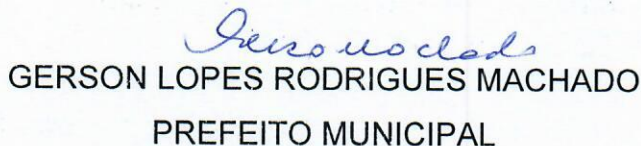 GERSON LOPES RODRIGUES MACHADO
PREFEITO MUNICIPAL